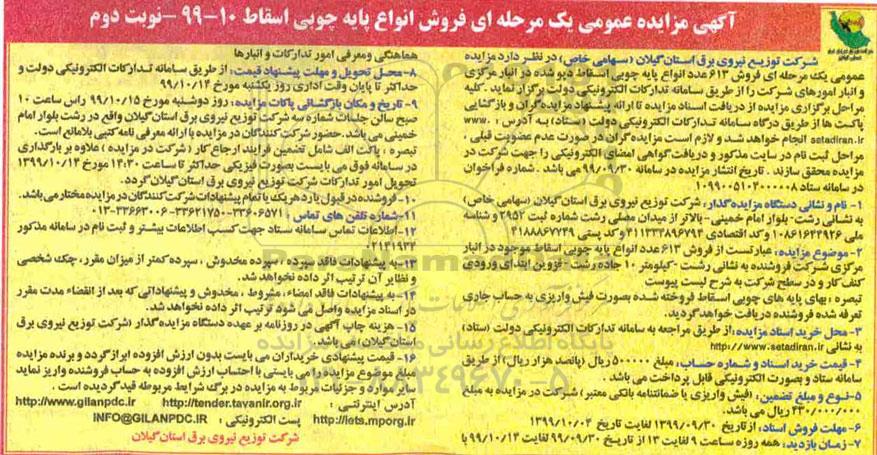 آگهی مزایده عمومی یک مرحله ای فروش انواع پایه چوبی اسقاط ۱۰-۹۹ -نوبت دوم
شرکت توزیع نیروی برق استان گیلان (سهامی خاص) در نظر دارد مزایده
عمومی یک مرحله ای فروش ۶۱۳ عدد انواع پایه چوبی اسقاط دپو شده در انبار مرکزی
و انبار امورهای شرکت را از طریق سامانه تدارکات الکترونیکی دولت برگزار نماید .کلیه
مراحل برگزاری مزایده از دریافت اسناد مزایده تا ارائه پیشنهاد مزایده گران و بازگشایی
پاکت ها از طریق درگاه سامانه تدارکات الکترونیکی دولت (ستاد) به آدرس : www.
setadiran.ir انجام خواهد شد و لازم است مزایده گران در صورت عدم عضویت قبلی ،
مراحل ثبت نام در سایت مذکور و دریافت گواهی امضای الکترونیکی را جهت شرکت در
مزایده محقق سازند . تاریخ انتشار مزایده در سامانه ۹۹/۰۹/۳۰ می باشد . شماره فراخوان
در سامانه ستاد ۱۰۹۹۰۰۵۱۰۳۰۰۰۰۰۸
۱- نام و نشانی دستگاه مزایده گذار: شرکت توزیع نیروی برق استان گیلان (سهامی خاص)
به نشانی رشت- بلوار امام خمینی- بالاتر از میدان مصلی رشت شماره ثبت ۲۹۵۲ و شناسه
ملی ۱۰۸۶۱۶۴۴۹۲۶ وکد اقتصادی ۴۱۱۳۳۴۸۹۶۷۹۴ وکد پستی ۴۱۸۸۸۶۷۷۴۹
۲- موضوع مزایده: عبارتست از فروش ۶۱۳ عدد انواع پایه چوبی اسقاط موجود در انبار
مرکزی شرکت فروشنده به نشانی رشت -کیلومتر ۱۰ جاده رشت - قزوین ابتدای ورودی
کنف کار و در سطح شرکت به شرح لیست پیوست
تبصره ، بهای پایه های چوبی اسقاط فروخته شده بصورت فیش واریزی به حساب جاری
تعرفه شده فروشنده دریافت خواهد گردید.
۳- محل خرید اسناد مزایده: از طریق مراجعه به سامانه تدارکات الکترونیکی دولت (ستاد)
به نشانی http://www.setadiran.ir
۴- قیمت خرید اسناد و شماره حساب: مبلغ ۵۰۰۰۰۰ ریال (پانصد هزار ریال) از طریق
سامانه ستاد و بصورت الکترونیکی قابل پرداخت می باشد .
۵-نوع و مبلغ تضمین: (فیش واریزی یا ضمانتنامه بانکی معتبر) شرکت در مزایده به مبلغ
۴۳۰/۰۰۰/۰۰۰ ریال می باشد.
۶- مهلت فروش اسناد: از تاریخ ۱۳۹۹/۰۹/۳۰ لغایت تاریخ ۱۳۹۹/۱۰/۰۴
۷- زمان بازدید: همه روزه ساعت ۹ لغایت ۱۳ از تاریخ ۹۹/۰۹/۳۰ لغایت ۹۹/۱۰/۱۴ با
هماهنگی ومعرفی امور تدارکات و انبارها
۸- محل تحویل و مهلت پیشنهاد قیمت: از طریق سامانه تدارکات الکترونیکی دولت و
حداکثر تا پایان وقت اداری روز یکشنبه مورخ ۹۹/۱۰/۱۴
۹- تاریخ و مکان بازگشائی پاکات مزایده: روز دوشنبه مورخ ۹۹/۱۰/۱۵ راس ساعت ۱۰
صبح سالن جلسات شماره سه شرکت توزیع نیروی برق استان گیلان واقع در رشت بلوار امام
خمینی می باشد. حضور شرکت کنندگان در مزایده با ارائه معرفی نامه کتبی بلامانع است.
تبصره ، پاکت الف شامل تضمین فرایند ارجاع کار ( شرکت در مزایده ) علاوه بر بارگذاری
در سامانه فوق می بایست بصورت فیزیکی حداکثر تا ساعت ۱۴:۳۰ مورخ ۱۳۹۹/۱۰/۱۴
تحویل امور تدارکات شرکت توزیع نیروی برق استان گیلان گردد.
۱۰- فروشنده در قبول یا رد هر یک یا تمام پیشنهادات شرکت کنندگان در مزایده مختار می باشد.
۱۱-شماره تلفن های تماس : ۳۳۶۰۶۵۷۱-۳۳۶۲۱۷۵۰-۳۳۶۶۳۰۰۶-۰۱۳
۱۲-اطلاعات تماس سامانه ستاد جهت کسب اطلاعات بیشتر و ثبت نام در سامانه مذکور
۰۲۱۴۱۹۳۴
۱۳- به پیشنهادات فاقد سپرده ، سپرده مخدوش ، سپرده کمتر از میزان مقرر، چک شخصی
و نظایر آن ترتیب اثر داده نخواهد شد.
۱۴- به پیشنهادات فاقد امضاء، مشروط ، مخدوش و پیشنهاداتی که بعد از انقضاء مدت مقرر
در اسناد مزایده واصل می شود ترتیب اثر داده نخواهد شد.
۱۵- هزینه چاپ آگهی در روزنامه بر عهده دستگاه مزایده گذار (شرکت توزیع نیروی برق
استان گیلان) می باشد.
۱۶- قیمت پیشنهادی خریداران می بایست بدون ارزش افزوده ابراز گردد و برنده مزایده
مبلغ موضوع مزایده را می بایستی با احتساب ارزش افزوده به حساب فروشنده واریز نماید
سایر موارد و جزئیات مربوط به مزایده در برگ شرایط مربوطه قید گردیده است .
آدرس اینترنتی : http://tender.tavanir.org.ir http://www.gilanpdc.ir
http://iets.mporg.ir پست الکترونیکی : INFO@GILANPDC.IR
شرکت توزیع نیروی برق استان گیلان